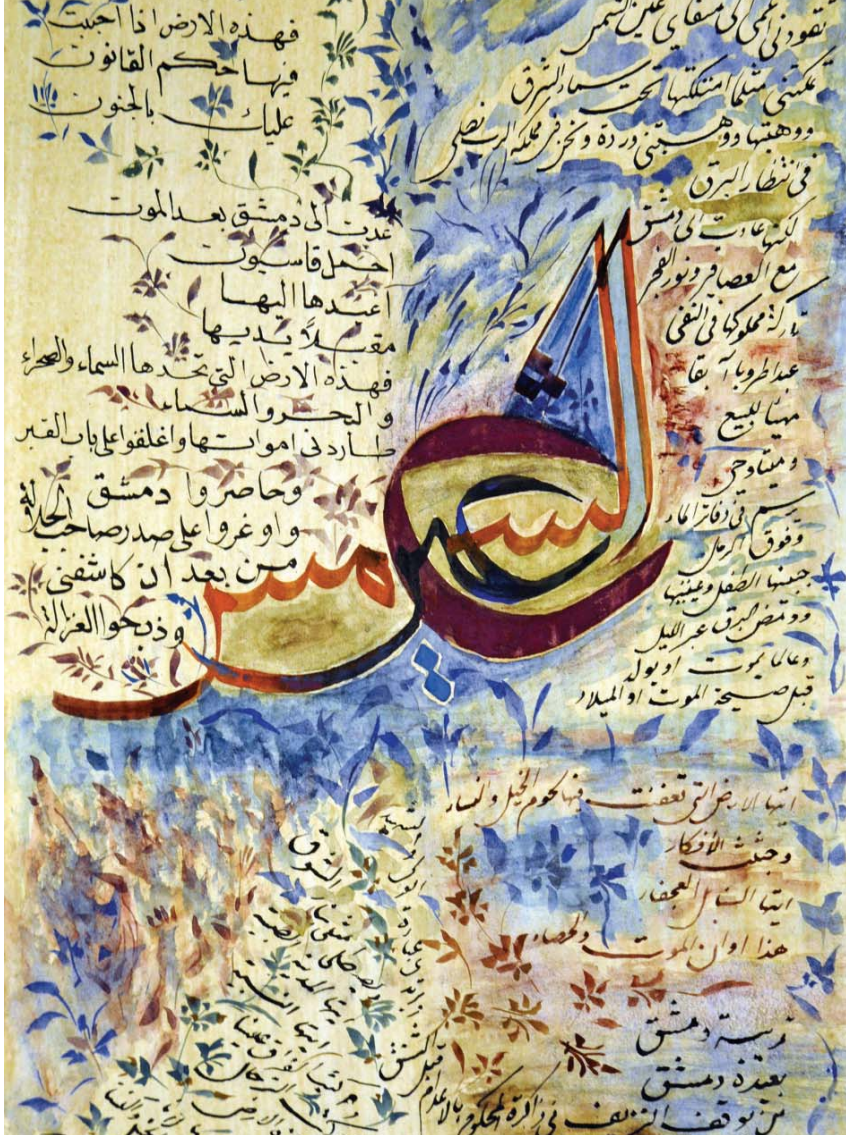 تقودني أعمى الى منفاي عين الشمس
تملكتني مثلما امتلكتها تحت سماء الشرق
ووهبتها ووهبتني وردة ونحن في مملكة الرب نصلي
في انتظار البرق
لكنها عادت الى دمشق
مع العصافير ونور الفجر
تاركة مملوكها في النفي
عبدا طروبا آبقا
مهيئا للبيع
وميتا وحي
يرسم في دفاتر الماء
وفوق الرمل
جبينها الطفل وعينيها
وومض البرق عبر الليل
وعالما يموت او يولد
قبل صيحة الموت او الميلاد
عين الشمس
فهذه الارض اذا احببت
فيها حكم القانون
عليك بالجنون
عدت الى دمشق بعد الموت
احمل قاسيون
اعيدها اليها
مقبلاً يديها
فهذه الارض التي تحدها السماء والصحراء
والبحر والسماء
طاردني امواتها واغلقوا على باب القبر
وحاصروا دمشق
واوغروا علي صدر صاحب الجلالة
من بعد ان كاشفني
وذبحوا الغزالة
ايتها الارض التي تعفنت فيها لحوم الخيل والنساء
وجثث الأفكار
ايتها السنابل العجفاء
هذا اوان الموت والحصاد
قريبة دمشق
بعيدة دمشق
من يوقف النزيف في ذاكرة المحكوم بالاعدام
قبل الشنق